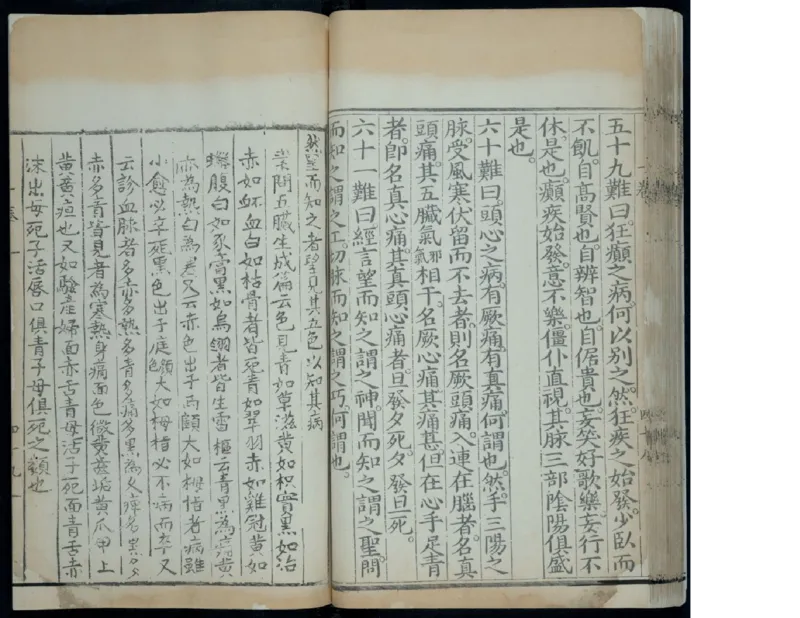 五十九難曰。狂癲之病。何以別之。然。狂疾之始發。少臥而
不飢。自高賢也。自辨智也。自倨貴也。妄笑好歌樂。妄行不
休是也。癲疾始發。意不樂。僵仆直視。其脉三部陰陽俱盛
是也。
六十難曰。頭心之病。有厥痛。有真痛。何謂也。然。手三陽之
脉。受風寒伏留而不去者。則名厥頭痛。入連在腦者。名真
頭痛。其五臟氣邪氣相干。名厥心痛。其痛甚。但在心手足青
者。即名真心痛。其真頭心痛者。旦發夕死。夕發旦死。
六十一難曰。經言望而知之謂之神。聞而知之謂之聖。問
而知之謂之工。切脉而知之謂之巧。何謂也。
然。望而知之者。望見其五色以知其病
素問五臟生成篇云色見青如草滋黃如枳實黑如炲
赤如衃血白如枯骨者皆死青如翠羽赤如雞冠黃如
蠏腹白如豕膏黑如烏翎者皆生靈樞云青黑為痛黃
赤為熱白為寒又云赤色出于兩顴大如拇指者病雖
小愈必卒死黑色出于庭顏大如拇指必不病而卒又
云診血脉者多赤多熱多青多痛多黑為久痺
赤多青皆見者為寒熱身痛面色微黃齒垢黃爪甲上
黃黃疸也又如驗產婦面赤舌青母活子死面青舌赤
沫出母死子活唇口俱青子母俱死之類也